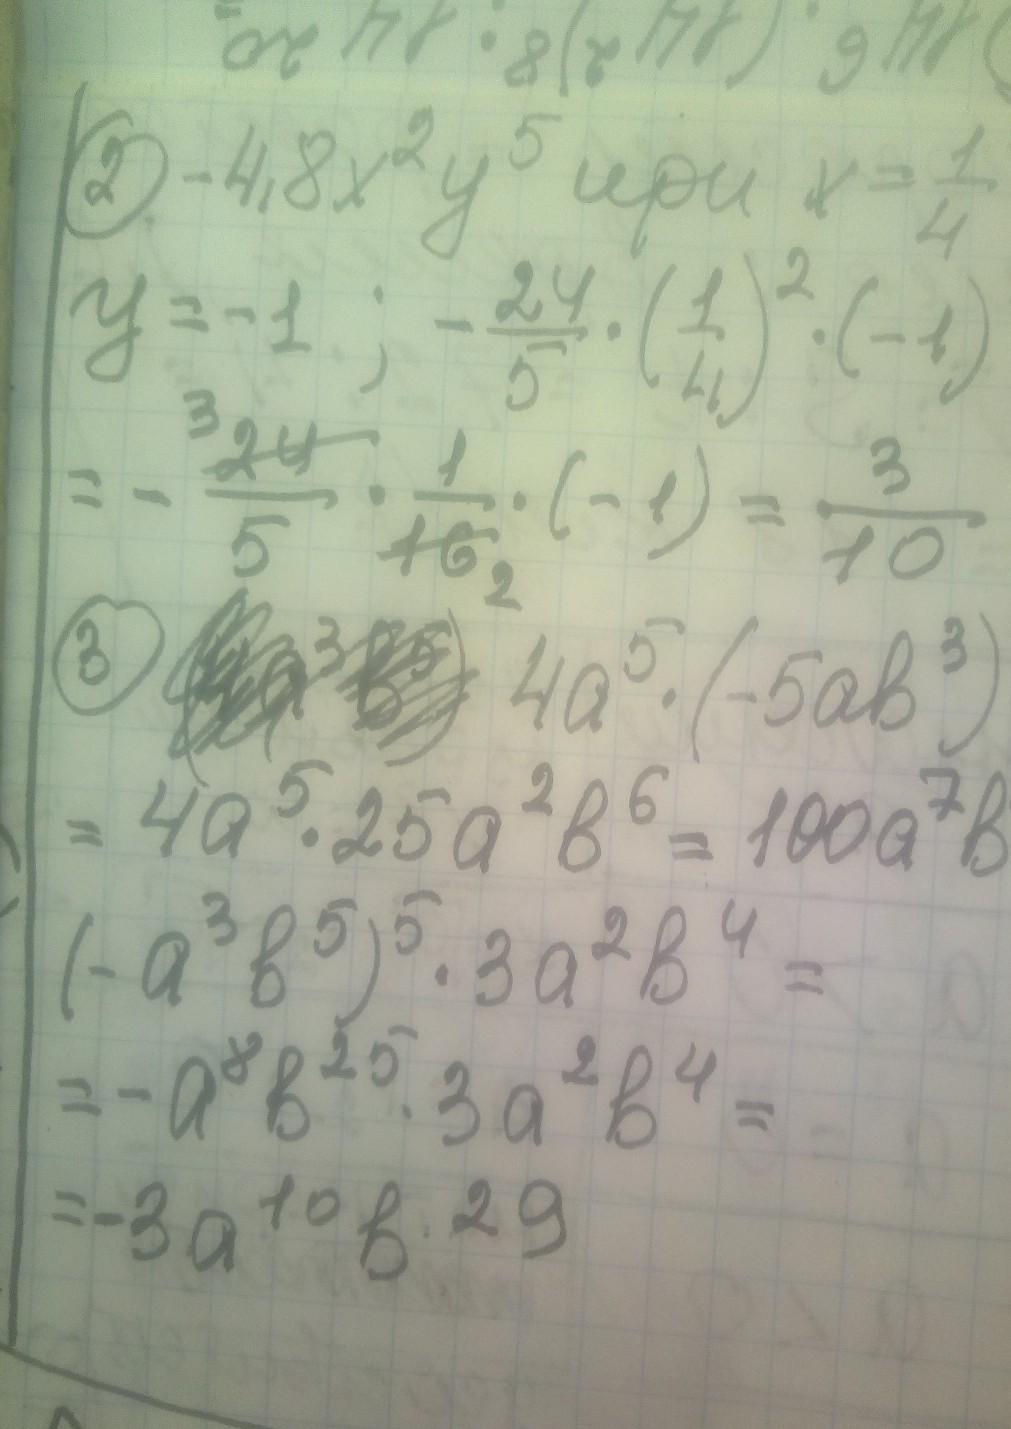 ② -4,8x²y⁵ при x = 1/4
y = -1 ; - 24/5 · (1/4)² · (-1)
= - ³24/5 · 1/16₂ · (-1) = 3/10
③ 4a⁵ · (-5ab³)
= 4a⁵ · 25a²b⁶ = 100a⁷b
(-a³b⁵)⁵ · 3a²b⁴ =
= -a⁸b²⁵ · 3a²b⁴ =
= -3a¹⁰b²⁹